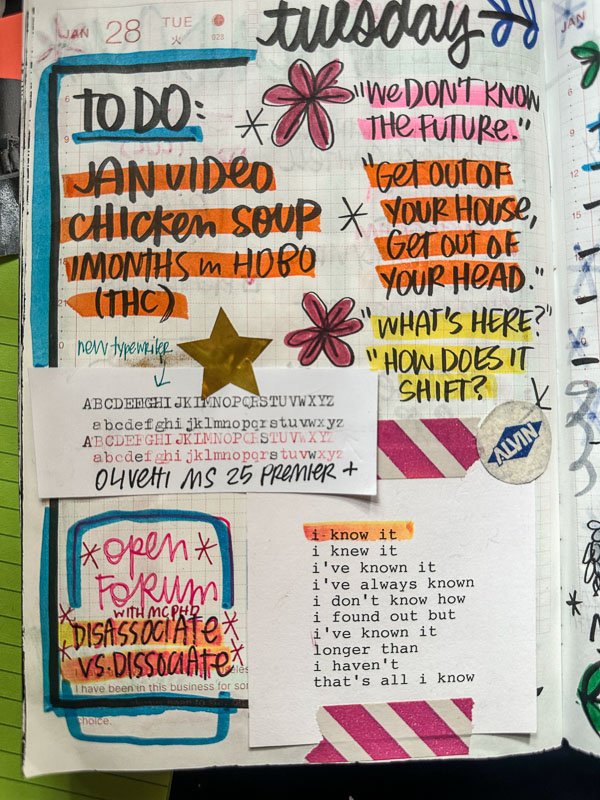 JAN 28 TUE
火
tuesday
JAN
TO DO:
JAN VIDEO
CHICKEN SOUP
1 MONTHS in HOBO
(THC)
"WE DON'T KNOW
THE FUTURE."
"GET OUT OF
YOUR HOUSE,
GET OUT OF
YOUR HEAD."
"WHAT'S HERE?"
"HOW DOES IT
SHIFT?
new typewriter
ABCDEFGHIJKLMNOPQRSTUVWXYZ
abcdefghijklmnopqrstuvwxyz
ABCDEFGHIJKLMNOPQRSTUVWXYZ
abcdefghijklmnopqrstuvwxyz
OLIVETTI MS 25 PREMIER +
ALVIN
OPEN
FORUM
WITH MCPHD
DISASSOCIATE
VS. DISSOCIATE
I have been in this business for
choice.
i know it
i knew it
i've known it
i've always known
i don't know how
i found out but
i've known it
longer than
i haven't
that's all i know